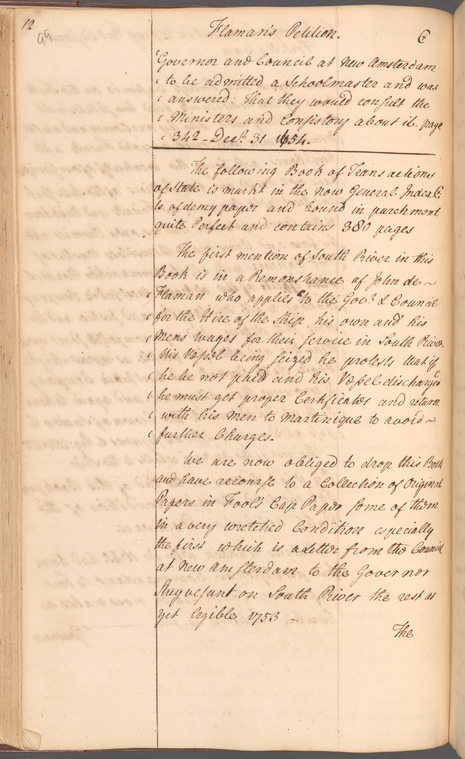 12
99
Flaman's Petition.
Governor and Council at New Amsterdam
to be admitted a Schoolmaster and was
answered: that they would consult the
Ministers and Consistory about it. page
342 - Decr. 31 1654.
The following Book of Transactions
of State is markt in the now General Index
is of demy paper and bound in parchment
quite Perfect and contains 380 pages
The first mention of South River in this
Book is in a Remonstrance of John de ~
Flaman who applies to the Govr. & Council
for the Hire of the Ship his own and his
Mens wages for their service in South River
His Vessel being seized he protests that if
he be not paid and his Vessel discharged
he must get proper Certificates and return
with his men to Martinique to avoid ~
further Charges.
We are now obliged to drop this Book
and have recourse to a Collection of Original
Papers in Fool's Cap Paper some of them
in a very wretched Condition especially
the first which is a letter from the Council
at New Amsterdam to the Governor
Stuyvesant on South River the rest as
yet legible 1753 ~
The